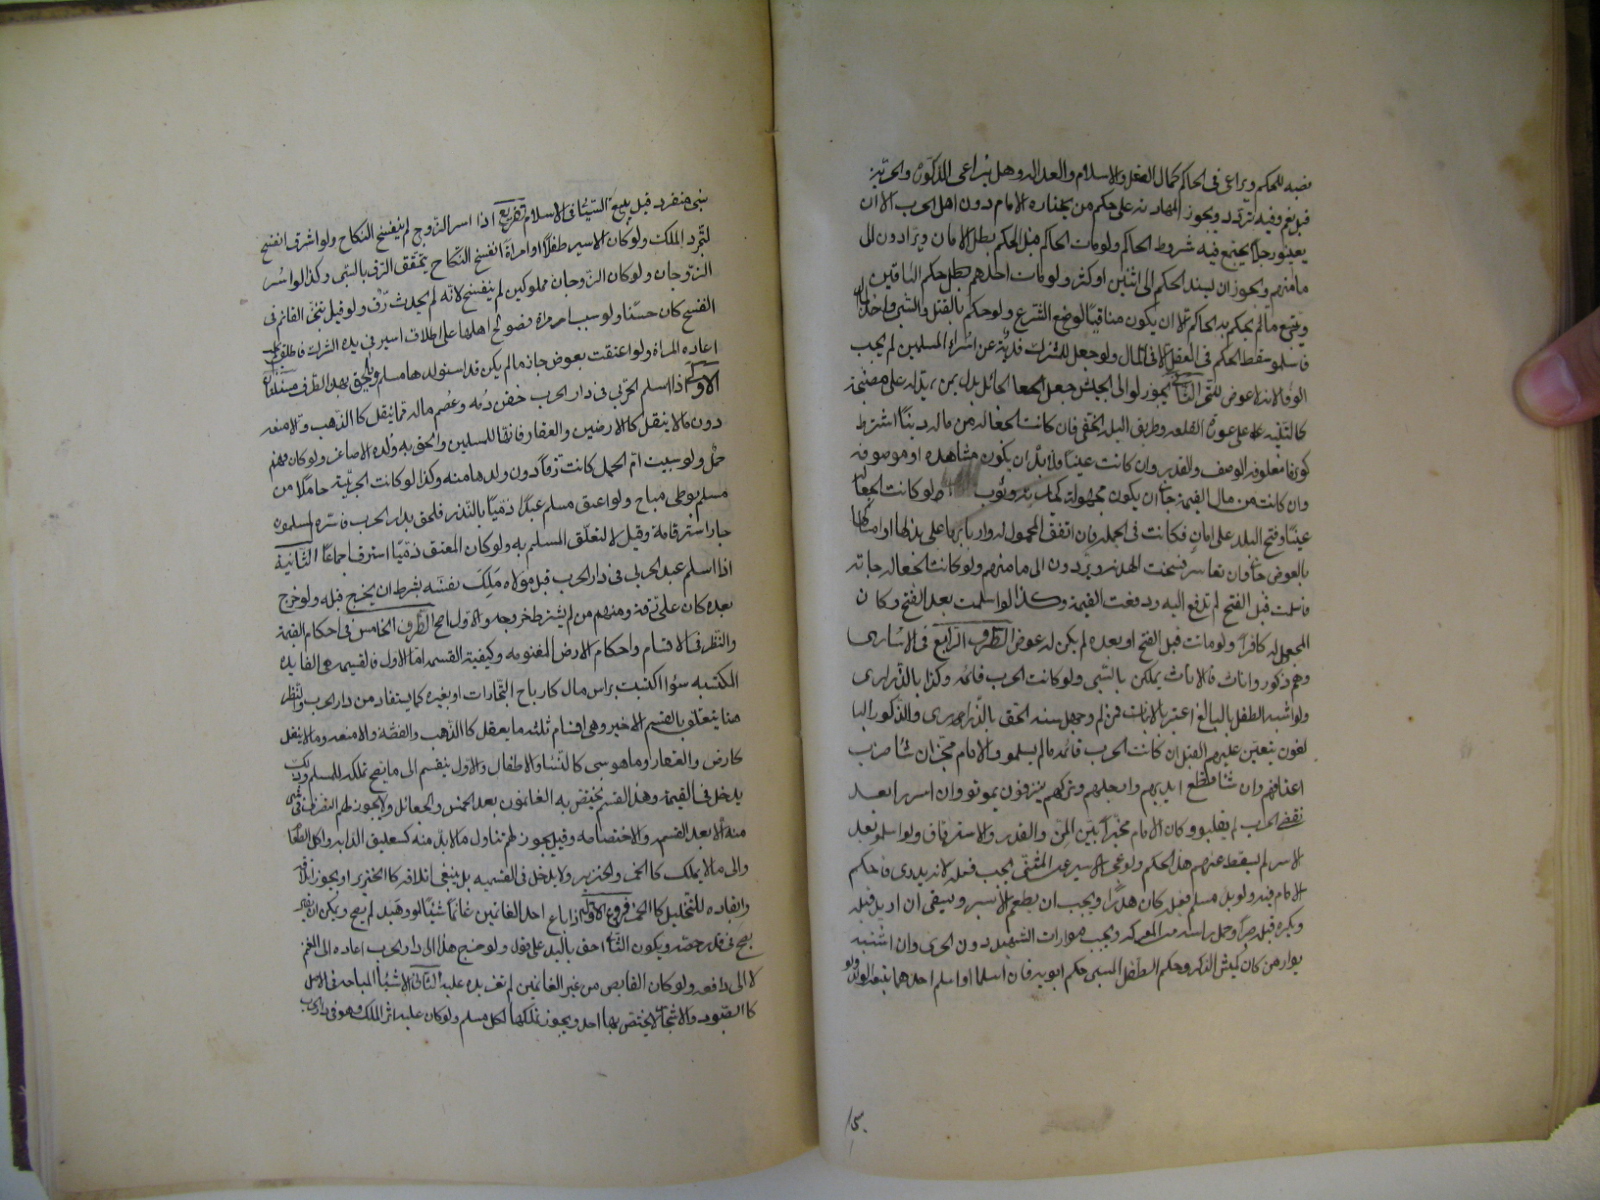 نصبه للحكم ويراعى في الحاكم كمال العقل والاسلام والعدالة وهل يراعى الذكورة والحرية
قيل نعم وفيه تردد ويجوز المهادنة على حكم من يختاره الامام دون اهل الحرب الا ان
يعينوا رجلا يجتمع فيه شروط الحاكم ولو مات الحاكم قبل الحكم بطل الامان ويردون الى
مأمنهم ويجوز ان يسند الحكم الى اثنين او اكثر ولو مات احدهم بطل حكم الباقين
ويتبع ما لم يحكم به الحاكم الا ان يكون منافيا لوضع الشرع ولو حكم بالقتل والسبى واخذ المال
فاسلموا سقط الحكم في القتل لا في المال ولو جعل للمشرك فدية عن اسراء المسلمين لم يجب
الوفا لانه لا عوض للحر الثالثة يجوز لوالى الجيش جعل الجعائل لمن يدله على مصلحة
كالتنبيه على عورة القلعة وطريق البلد الخفى فان كانت الجعالة من ماله دينا اشترط
كونها معلومة الوصف والقدر وان كانت عينا فلا بد ان يكون مشاهدة او موصوفة
وان كانت من مال الغنيمة جاز ان يكون مجهولة كجارية وثوب لو كانت الجعالة
عينا وفتح البلد على امان فكانت في الجملة فان اتفق المجعول له واربابها على بذلها او امساكها
بالعوض جاز وان تعاسروا فسخت الهدنة ويردون الى مأمنهم ولو كانت الجعالة جارية
فاسلمت قبل الفتح لم تدفع اليه ودفعت القيمة وكذا لو اسلمت بعد الفتح وكان
المجعول له كافرا ولو ماتت قبل الفتح او بعده لم يكن له عوض الطرف الرابع في الاسارى
وهم ذكور واناث فالاناث يملكن بالسبى ولو كانت الحرب قائمة وكذا بالذرارى
ولو اشتبه الطفل بالبالغ اعتبر بالانبات فمن لم وجهل سنه الحق بالذرارى والذكور البا
لغون يتعين عليهم القتل ان كانت الحرب قائمة ما لم يسلموا والامام مخير ان شا ضرب
اعناقهم وان شا قطع ايديهم وارجلهم وتركهم ينزفون يموتوا وان اسروا بعد
تقضى الحرب لم يقتلوا وكان الامام مخيرا بين المن والفداء والاسترقاق ولو اسلموا بعد
الاسر لم يسقط عنهم هذا الحكم ولو عجز الاسير عن المشى لم يجب قتله لانه لا يدرى ما حكم
الامام فيه ولو بدر مسلم فقتله كان هدرا ويجب ان يطعم الاسير ويسقى وان اريد قتله
ويكره قتله صبرا وحمل راسه من المعركة ويجب مواراة الشهيد دون الحربى وان اشتبه
يوارى من كان كميش الذكر وحكم الطفل المسبى حكم ابويه فان اسلما او اسلم احدهما تبعه الولد ولو
سبى منفردا قيل يتبع السابى في الاسلام تفريع اذا اسر الزوج لم ينفسخ النكاح ولو استرق انفسخ
لتجدد الملك ولو كان الاسير طفلا او امرأة انفسخ النكاح لتحقق الرق بالسبى وكذا لو اسر
الزوجان ولو كان الزوجان مملوكين لم ينفسخ لانه لم يحدث رق ولو قيل بتخير الغانم في
الفسخ كان حسنا ولو سبيت امرأة فصولح اهلها على اطلاق اسير في يد اهل الشرك فاطلق لم يجب
اعادة المرأة ولو اعتقت بعوض جاز ما لم يكن قد استولدها مسلم ويلحق بهذا الطرف مسئلتان
الاولى اذا اسلم الحربى في دار الحرب حقن دمه وعصم ماله مما ينقل كالذهب والامتعة
دون ما لا ينقل كالارضين والعقار فانها للمسلمين والحق به ولده الاصاغر ولو كان فيهم
حمل ولو سبيت ام الحمل كانت رقا دون ولدها منه وكذا لو كانت الحربية حاملا من
مسلم بوطى مباح ولو اعتق مسلم عبدا ذميا بالنذر فلحق بدار الحرب فاسره المسلمون
جاز استرقاقه وقيل لا لتعلق المسلم به ولو كان المعتق ذميا استرق اجماعا الثانية
اذا اسلم عبد الحربى في دار الحرب قبل مولاه ملك نفسه بشرط ان يخرج قبله ولو خرج
بعده كان على رقه ومنهم من لم يشترط خروجه والاول اصح الطرف الخامس في احكام الغنيمة
والنظر في الاقسام واحكام الارض المغنومة وكيفية القسمة اما الاول فالغنيمة هى الفايدة
المكتسبة سوا اكتسبت براس مال كارباح التجارات او بغيره كما يستفاد من دار الحرب والنظر
هنا يتعلق بالقسم الاخير وهى اقسام ثلثة ما ينقل كالذهب والفضة والامتعة وما لا ينقل
كارض والعقار وما هو سبى كالنسا والاطفال والاول ينقسم الى ما يصح تملكه للمسلم وذلك
يدخل في الغنيمة وهذا القسم يختص به الغانمون بعد الخمس والجعائل ولا يجوز لهم التصرف فى شئ
منه الا بعد القسمة والاختصاص وقيل يجوز لهم تناول ما لا بد منه كعليق الدابة واكل الطعام
والى ما لا يملك كالخمر والخنزير ولا يدخل في القسمة بل ينبغى اتلافه كالخنزير او يجوز اتلافه
وابقاؤه للتخليل كالخمر فروع الاول اذا باع احد الغانمين غانما شيئا او وهبه لم يصح ويمكن ان يقال
يصح في قدر حصته ويكون الثانى احق باليد على قول ولو خرج هذا الى دار الحرب اعاده الى المغنم
لا الى دافعه ولو كان القابض من غير الغانمين لم تقر يده عليه الثانى الاشياء المباحة في الاصل
كالصيود والاشجار لا يختص بها احد ويجوز تملكها لكل مسلم ولو كان عليه اثر الملك وهو فى دار الحرب